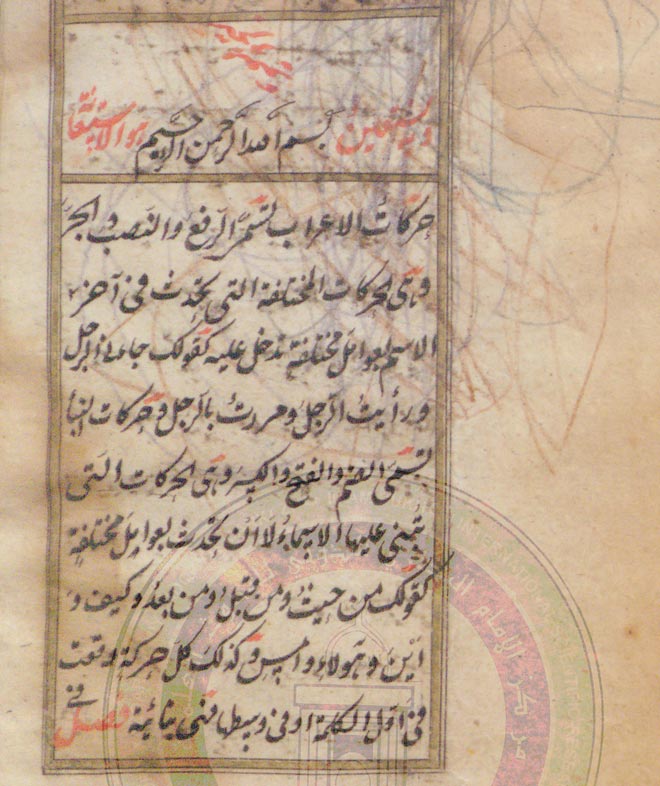 وبه نستعين بسم الله الرحمن الرحيم
حركات الاعراب تسمى الرفع والنصب والجر
وهى الحركات المختلفة التى تحدث فى آخر
الاسم لعوامل مختلفة تدخل عليه كقولك جاءنى الرجل
ورأيت الرجل ومررت بالرجل وحركات البناء
تسمى الضم والفتح والكسر وهى الحركات التى
تبنى عليها الاسماء لا أن تحدث لعوامل مختلفة
كقولك من حيث ومن قبل ومن بعد وكيف و
اين وهولاء وامس وكذلك كل حركة وقعت
فى اول الكلمة او فى وسطها فهى بنائية فصل فى